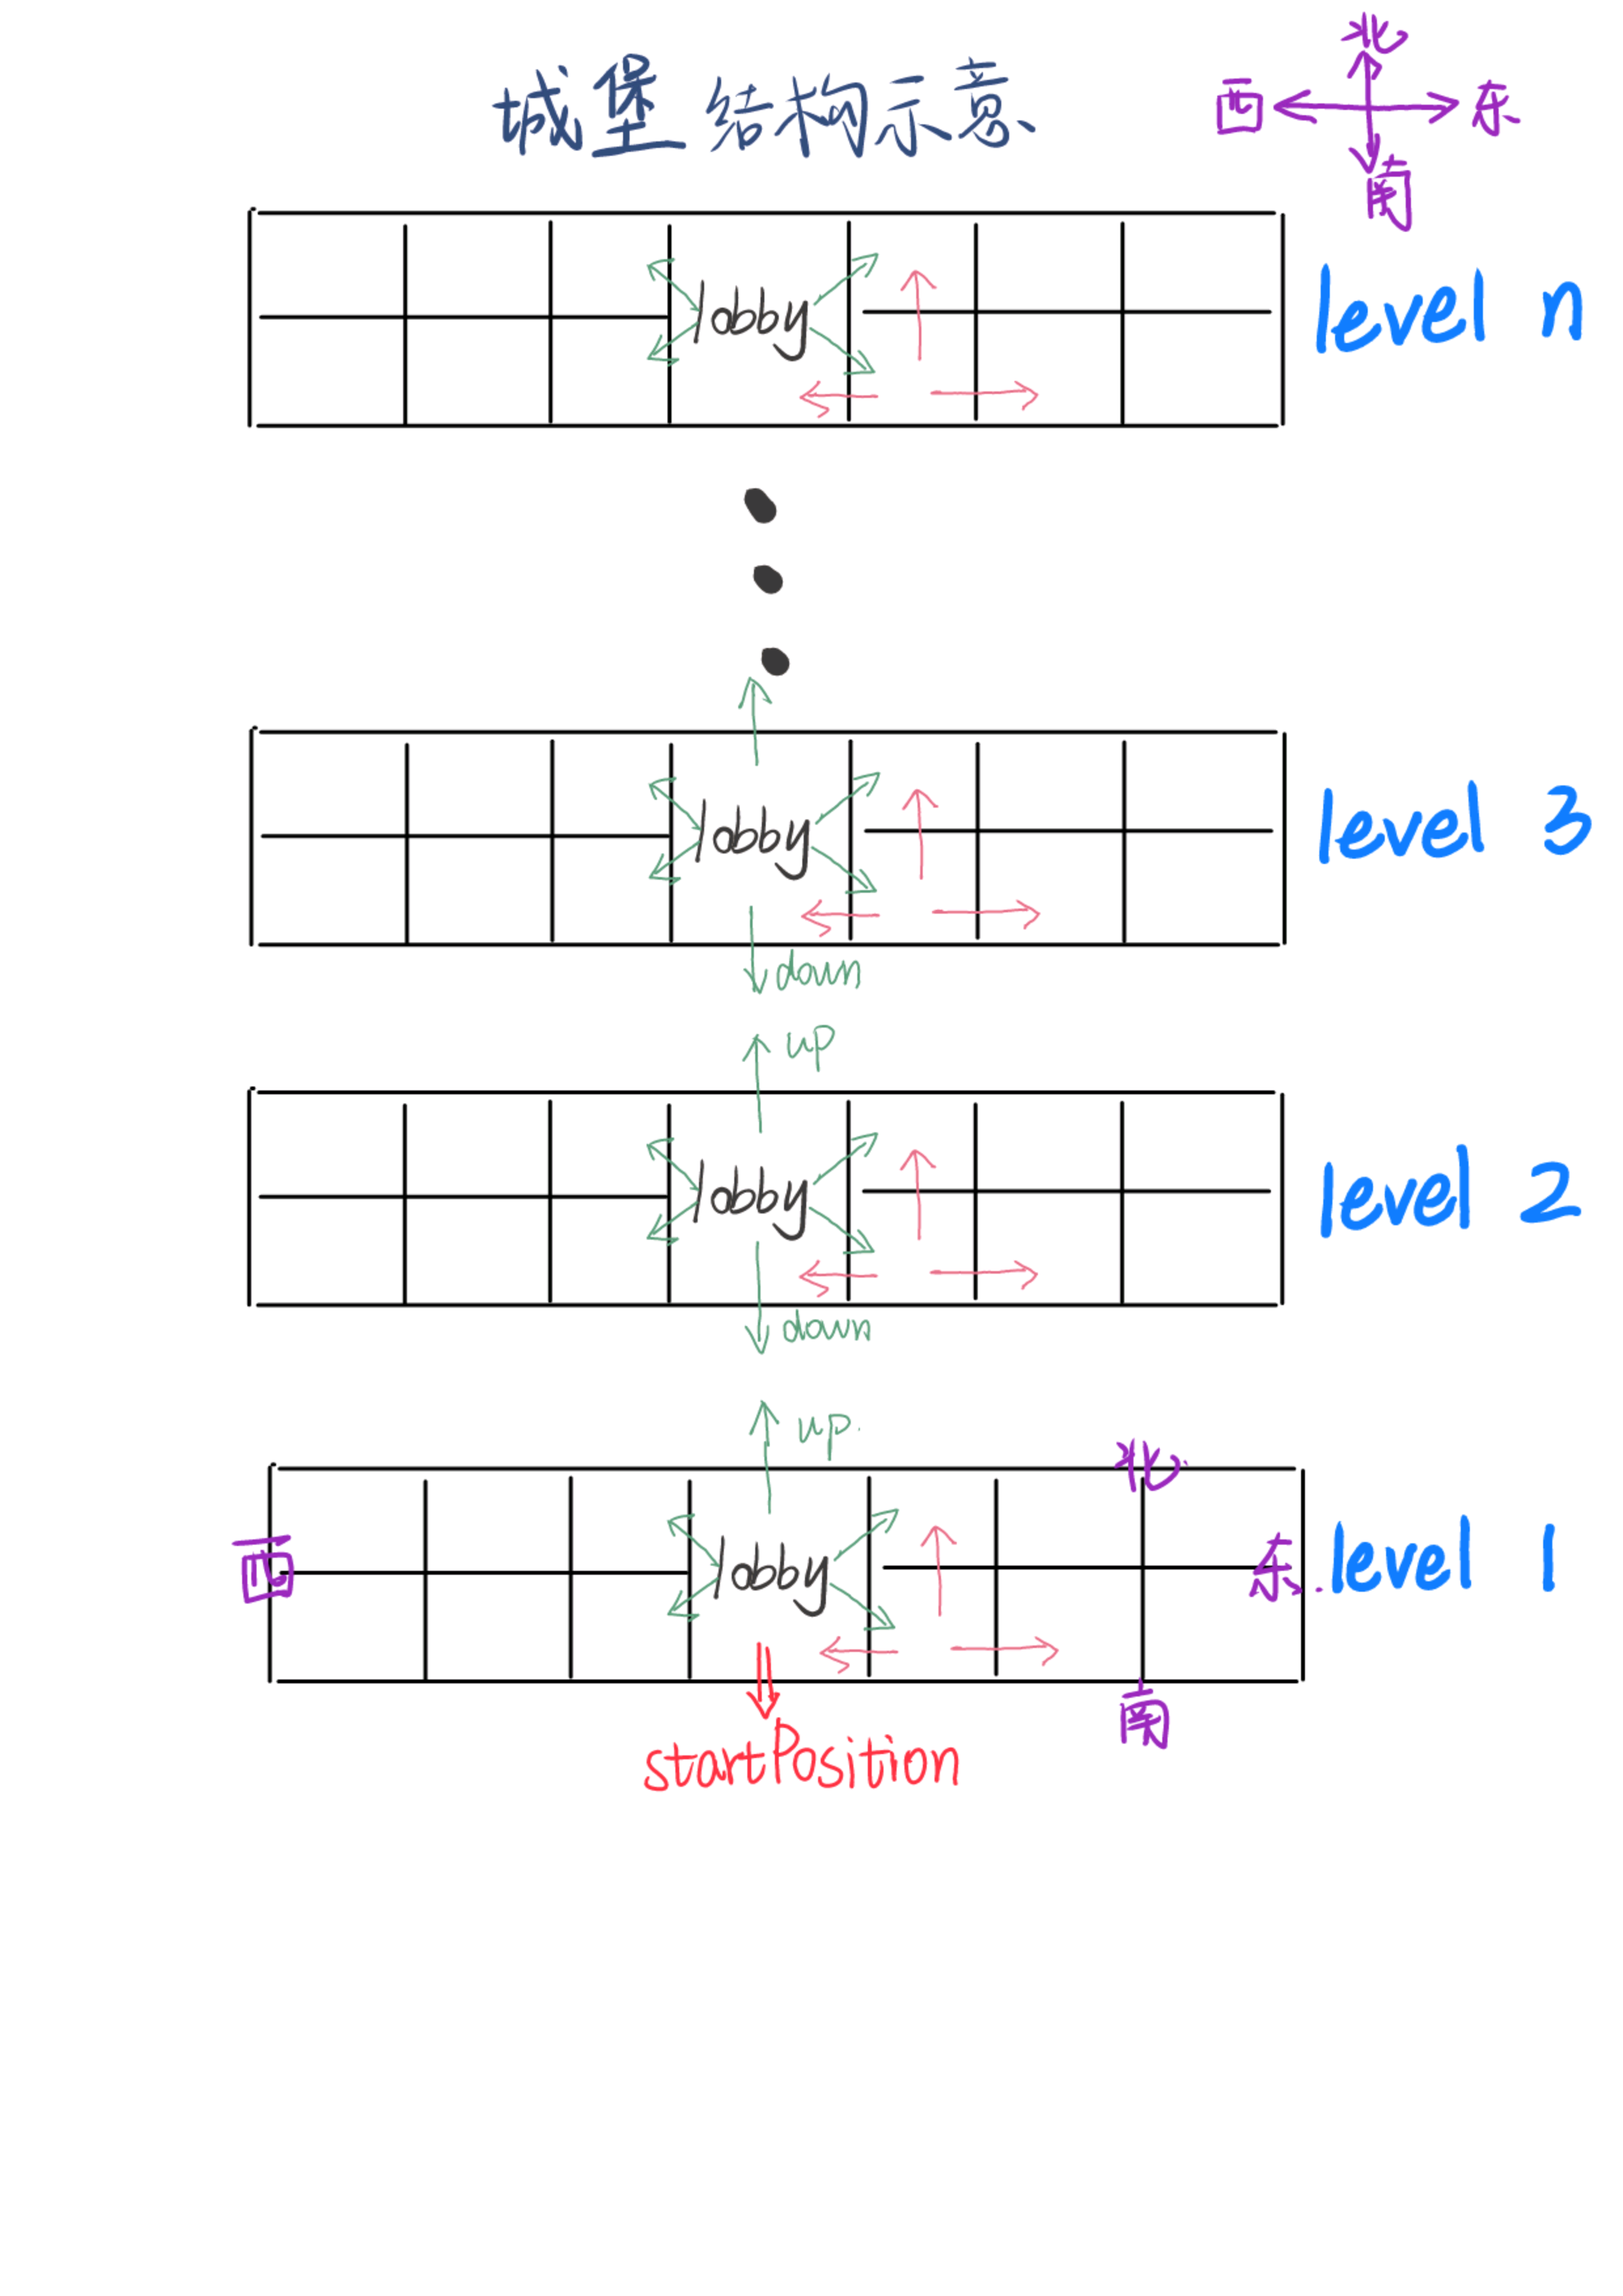 北
城堡结构示意
西 东
南
lobby
level n
lobby
level 3
down
up
lobby
level 2
down
up.
北
西
lobby
东.
level 1
startPosition
南